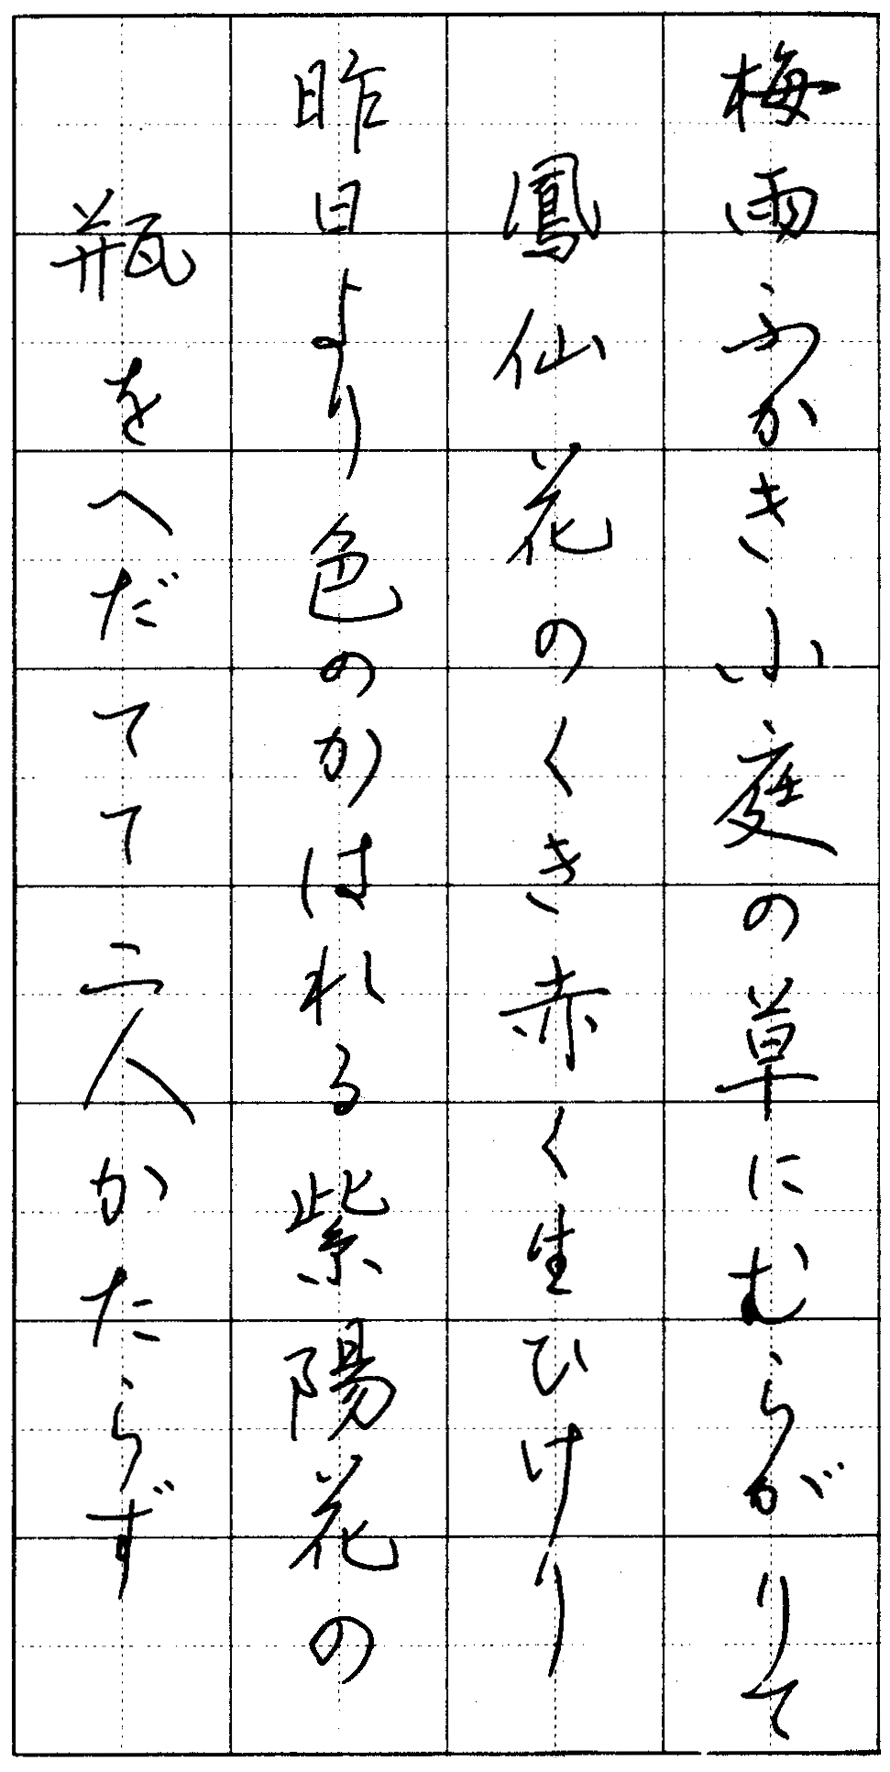 梅雨ふかき小庭の草にむらがりて
鳳仙花のくき赤く生ひけり
昨日より色のかはれる紫陽花の
瓶をへだてて二人かたらず